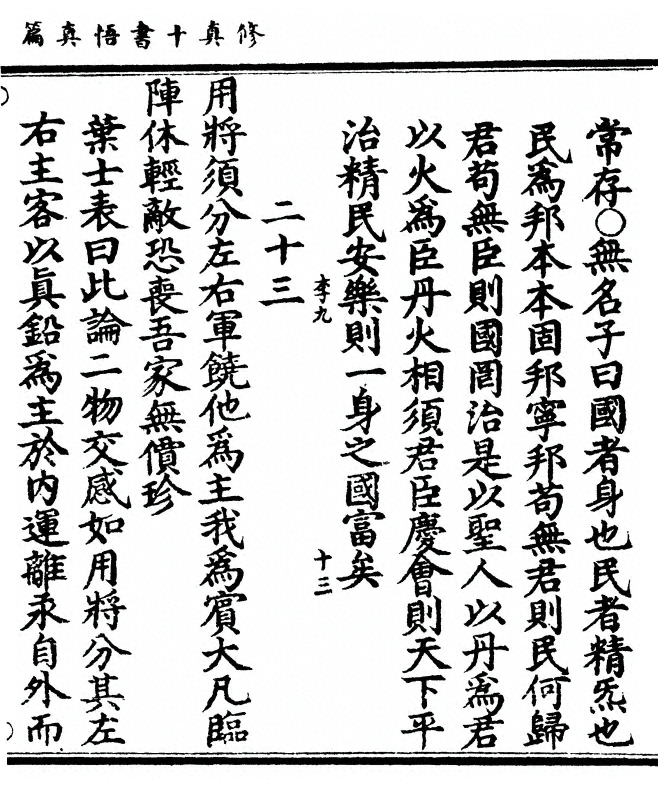 修真十書悟真篇
常存○無名子曰國者身也民者精炁也
民為邦本本固邦寧邦苟無君則民何歸
君苟無臣則國罔治是以聖人以丹為君
以火為臣丹火相須君臣慶會則天下平
治精民安樂則一身之國富矣
李九
十三
二十三
用將須分左右軍饒他為主我為賓大凡臨
陣休輕敵恐喪吾家無價珍
葉士表曰此論二物交感如用將分其左
右主客以眞鉛為主於内運離汞自外而